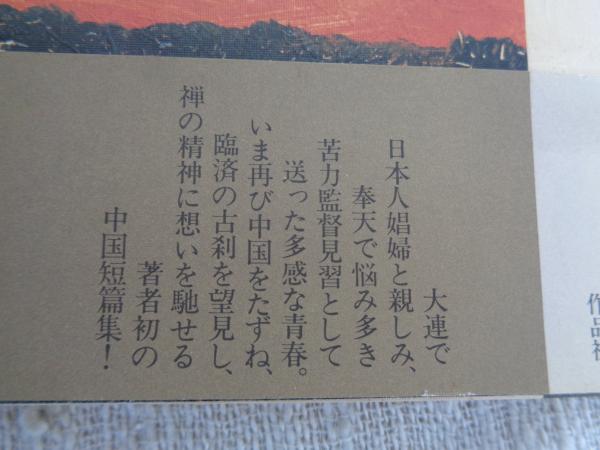 大連で
日本人娼婦と親しみ、
奉天で悩み多き
苦力監督見習として
送った多感な青春。
いま再び中国をたずね、
臨済の古刹を望見し、
禅の精神に想いを馳せる
著者初の
中国短篇集！
作品社